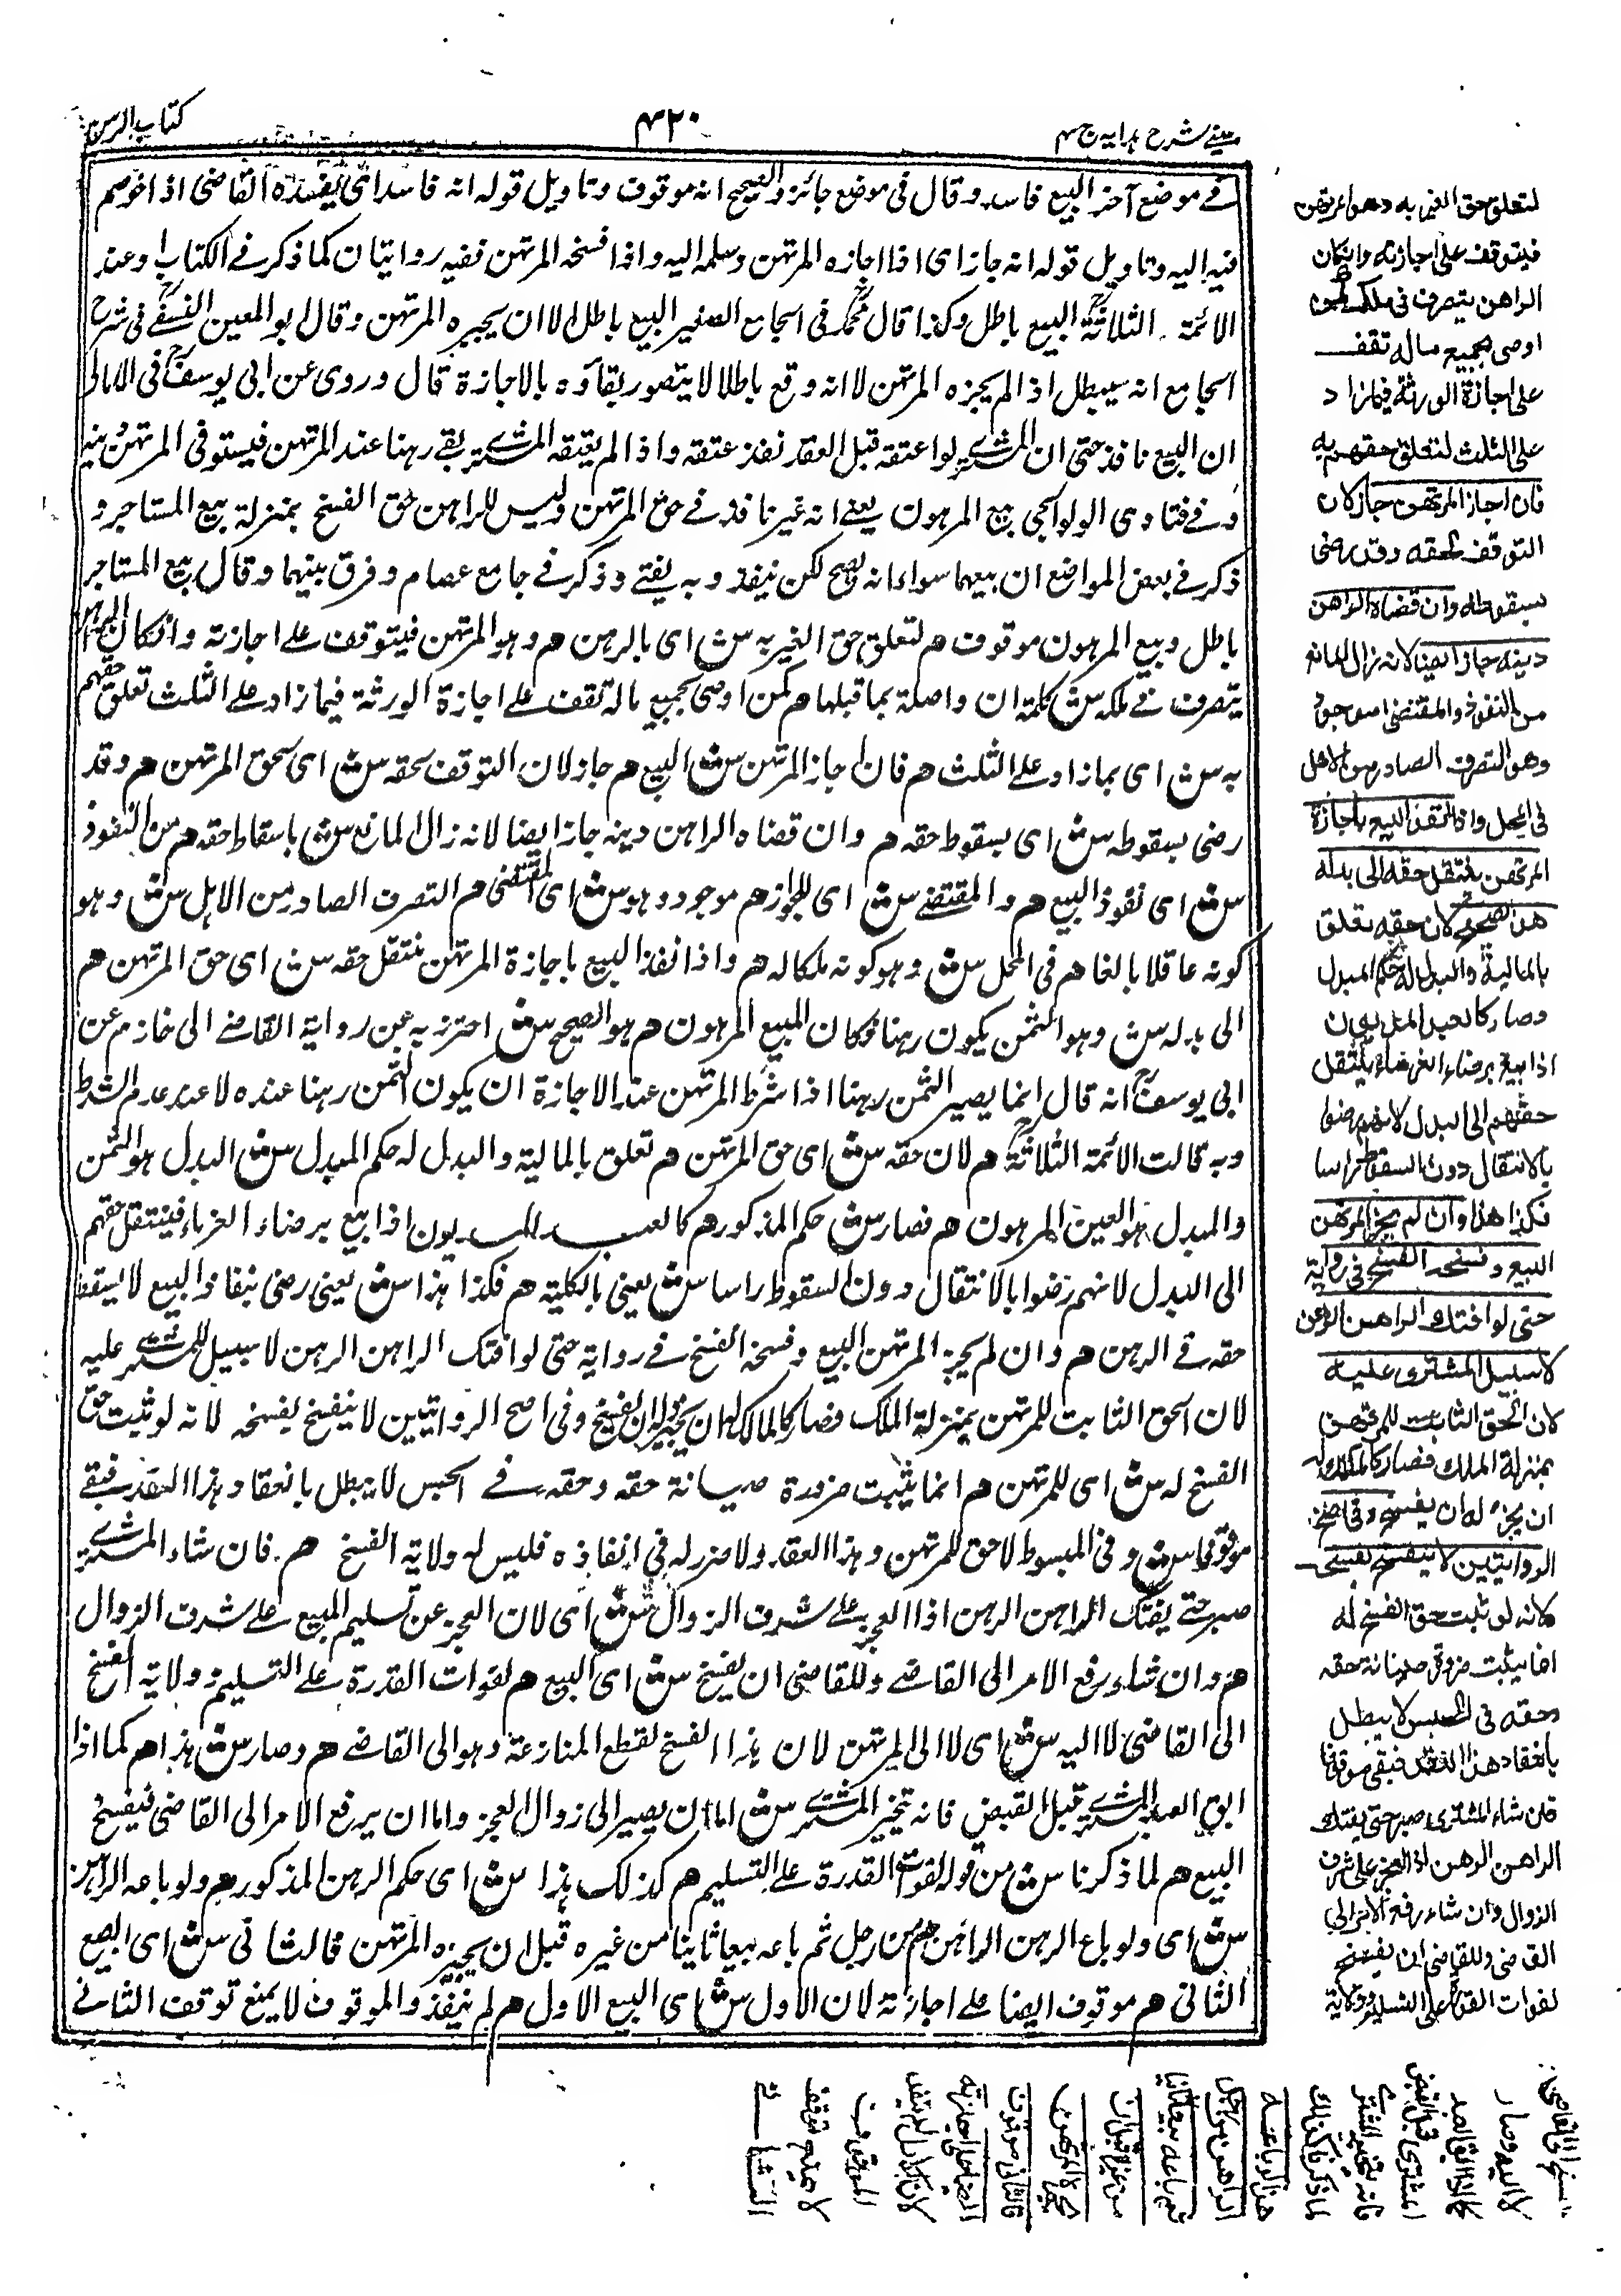 عینے شرح ہدایہ ج ۴
۴۲۰
کتاب الرہن
فے موضع آخر البیع فاسد وقال فی موضع جائز والصحیح انہ موقوف وتاویل قولہ انہ فاسد ای یفسدہ القاضی اذا خوصم
فیہ الیہ وتاویل قولہ انہ جاز ای اذا اجازہ المرتہن وسلمہ الیہ واذا فسخہ المرتہن ففیہ روایتان کما ذکر فے الکتاب وعند
الائمۃ الثلاثۃ البیع باطل وکذا قال محمد فی الجامع الصغیر البیع باطل الا ان یجیرہ المرتہن وقال ابو المعین النسفے فی شرح
الجامع انہ سیبطل اذ الم یجزہ المرتہن لا انہ وقع باطلا لا یتصور بقاؤہ بالاجازۃ قال وروی عن ابی یوسف فی الامالی
ان البیع نافذ حتی ان المشترے لو اعتقہ قبل العقد نفذ عتقہ واذا لم یعتقہ المشترے بقے رہنا عند المرتہن فیستوفی المرتہن
وفے فتاوی الولوالجی بیع المرہون یعنے انہ غیر نافذ فے حق المرتہن ولیس للراہن حق الفسخ بمنزلۃ بیع المستاجر و
ذکر فے بعض المواضع ان بیعہما سواء انہ یصح لکن ینفذ وبہ یفتے وذکر فے جامع عصام وفرق بینہما وقال بیع المستاجر
باطل وبیع المرہون موقوف ھم لتعلق حق الغیر بہ ش ای بالرہن ھم وہو المرتہن فیتوقف علے اجازتہ وانکان الراہن
یتصرف فے ملکہ ش کلمۃ ان واصلۃ بما قبلہا ھم کمن اوصی بجمیع مالہ تقف علے اجازۃ الورثۃ فیما زاد علے الثلث تعلق حقہم
بہ ش ای بما زاد علے الثلث ھم فان اجاز المرتہن ش البیع ھم جاز لان التوقف لحقہ ش ای لحق المرتہن ھم وقد
رضی بسقوطہ ش ای بسقوط حقہ ھم وان قضاہ الراہن دینہ جاز ایضا لانہ زال المانع ش باسقاط حقہ ھم من النفوذ
ش ای نفوذ البیع ھم والمقتضے ش ای للجواز ھم موجود وہو ش ای المقتضی ھم التصرف الصادر من الاہل ش وہو
کونہ عاقلا بالغا ھم فی المحل ش وہو کونہ ملکا لہ ھم واذا نفذ البیع باجازۃ المرتہن ینتقل حقہ ش ای حق المرتہن ھم
الی بدلہ ش وہو الثمن یکون رہنا مکان المبیع المرہون ھم ہو الصحیح ش احترز بہ عن روایۃ القاضے ابی خازم عن
ابی یوسف انہ قال انما یصیر الثمن رہنا اذا شرط المرتہن عند الاجازۃ ان یکون الثمن رہنا عندہ لا عند عدم الشرط
وبہ قالت الائمۃ الثلاثۃ ھم لان حقہ ش ای حق المرتہن ھم تعلق بالمالیۃ والبدل لہ حکم المبدل ش البدل ہو الثمن
والمبدل ہو العین المرہون ھم فصار ش حکم المذکور ھم کالعبد المدیون اذا بیع برضاء الغرباء فینتقل حقہم
الی البدل لانہم رضوا بالانتقال دون السقوط راسا ش یعنی بالکلیۃ ھم فکذا ہذا ش یعنی رضی بنفاذ البیع لا یسقط
حقہ فے الرہن ھم وان لم یجز المرتہن البیع وفسخہ انفسخ فے روایۃ حتی لو افتک الراہن الرہن لا سبیل للمشترے علیہ
لان الحق الثابت للمرتہن بمنزلۃ الملک فصار کالمالک لہ ان یجیز ولہ ان یفسخ وفی اصح الروایتین لا ینفسخ بفسخہ لانہ لو ثبت حق
الفسخ لہ ش ای للمرتہن ھم انما یثبت ضرورۃ صیانۃ حقہ وحقہ فے الحبس لا یبطل بانعقاد ہذا العقد فبقے
موقوفا ش وفی المبسوط لا حق للمرتہن وہذا العقد ولا ضرر لہ فی انفاذہ فلیس لہ ولایۃ الفسخ ھم فان شاء المشترے
صبر حتے یفتک الراہن الرہن اذ العجز علے شرف الزوال ش ای لان العجز عن تسلیم المبیع علے شرف الزوال
ھم وان شاء رفع الامر الی القاضے وللقاضی ان یفسخ ش ای البیع ھم لفوات القدرۃ علے التسلیم وولایۃ الفسخ
الی القاضی لا الیہ ش ای لا الی المرتہن لان ہذا الفسخ لقطع المنازعۃ وہو الی القاضے ھم وصار ش ہذا ھم کما اذا
ابق العبد المشترے قبل القبض فانہ تخیر المشترے ش اما ان یصیر الی زوال العجز واما ان یرفع الامر الی القاضی فیفسخ
البیع ھم لما ذکرنا ش من قولہ لفوات القدرۃ علے التسلیم ھم کذلک ہذا ش ای حکم الرہن المذکور ھم ولو باعہ الراہن
ش ای ولو باع الرہن الراہن ھم من رجل ثم باعہ بیعا ثانیا من غیرہ قبل ان یجیزہ المرتہن فالثانی ش ای البیع
الثانی ھم موقوف ایضا علے اجازتہ لان الاول ش ای البیع الاول ھم لم ینفذ والموقوف لا یمنع توقف الثانے
لتعلق حق الغیر بہ وھو المرتھن
فیتوقف علی اجازتہ وانکان
الراھن یتصرف فی ملکہ کمن
اوصی بجمیع مالہ تقف
علی اجازۃ الورثۃ فیما زاد
علی الثلث لتعلق حقھم بہ
فان اجاز المرتھن جاز لان
التوقف لحقہ وقد رضی
بسقوطہ وان قضاہ الراھن
دینہ جاز ایضا لانہ زال المانع
من النفوذ والمقتضی موجود
وھو التصرف الصادر من الاھل
فی المحل واذا نفذ البیع باجازۃ
المرتھن ینتقل حقہ الی بدلہ
ھو الصحیح لان حقہ تعلق
بالمالیۃ والبدل لہ حکم المبدل
وصار کالعبد المدیون
اذا بیع برضاء الغرماء ینتقل
حقھم الی البدل لانھم رضوا
بالانتقال دون السقوط راسا
فکذا ھذا وان لم یجز المرتھن
البیع وفسخہ انفسخ فی روایۃ
حتی لو افتک الراھن الرھن
لا سبیل للمشتری علیہ
لان الحق الثابت للمرتھن
بمنزلۃ الملک فصار کالمالک لہ
ان یجیز ولہ ان یفسخ وفی اصح
الروایتین لا ینفسخ بفسخہ
لانہ لو ثبت حق الفسخ لہ
انما یثبت ضرورۃ صیانۃ حقہ
وحقہ فی الحبس لا یبطل
بانعقاد ھذا العقد فبقی موقوفا
فان شاء المشتری صبر حتی یفتک
الراھن الرھن اذ العجز علی شرف
الزوال وان شاء رفع الامر الی
القاضی وللقاضی ان یفسخ
لفوات القدرۃ علی التسلیم وولایۃ
الفسخ الی القاضی
لا الیہ وصار
کما اذا ابق العبد
المشتری قبل القبض
فانہ یتخیر المشتری
لما ذکرنا کذلک
ھذا ولو باعہ
الراھن من رجل
ثم باعہ بیعا ثانیا
من غیرہ قبل ان
یجیزہ المرتھن
فالثانی موقوف
ایضا علی اجازتہ
لان الاول لم ینفذ
والموقوف
لا یمنع توقف
الثانی